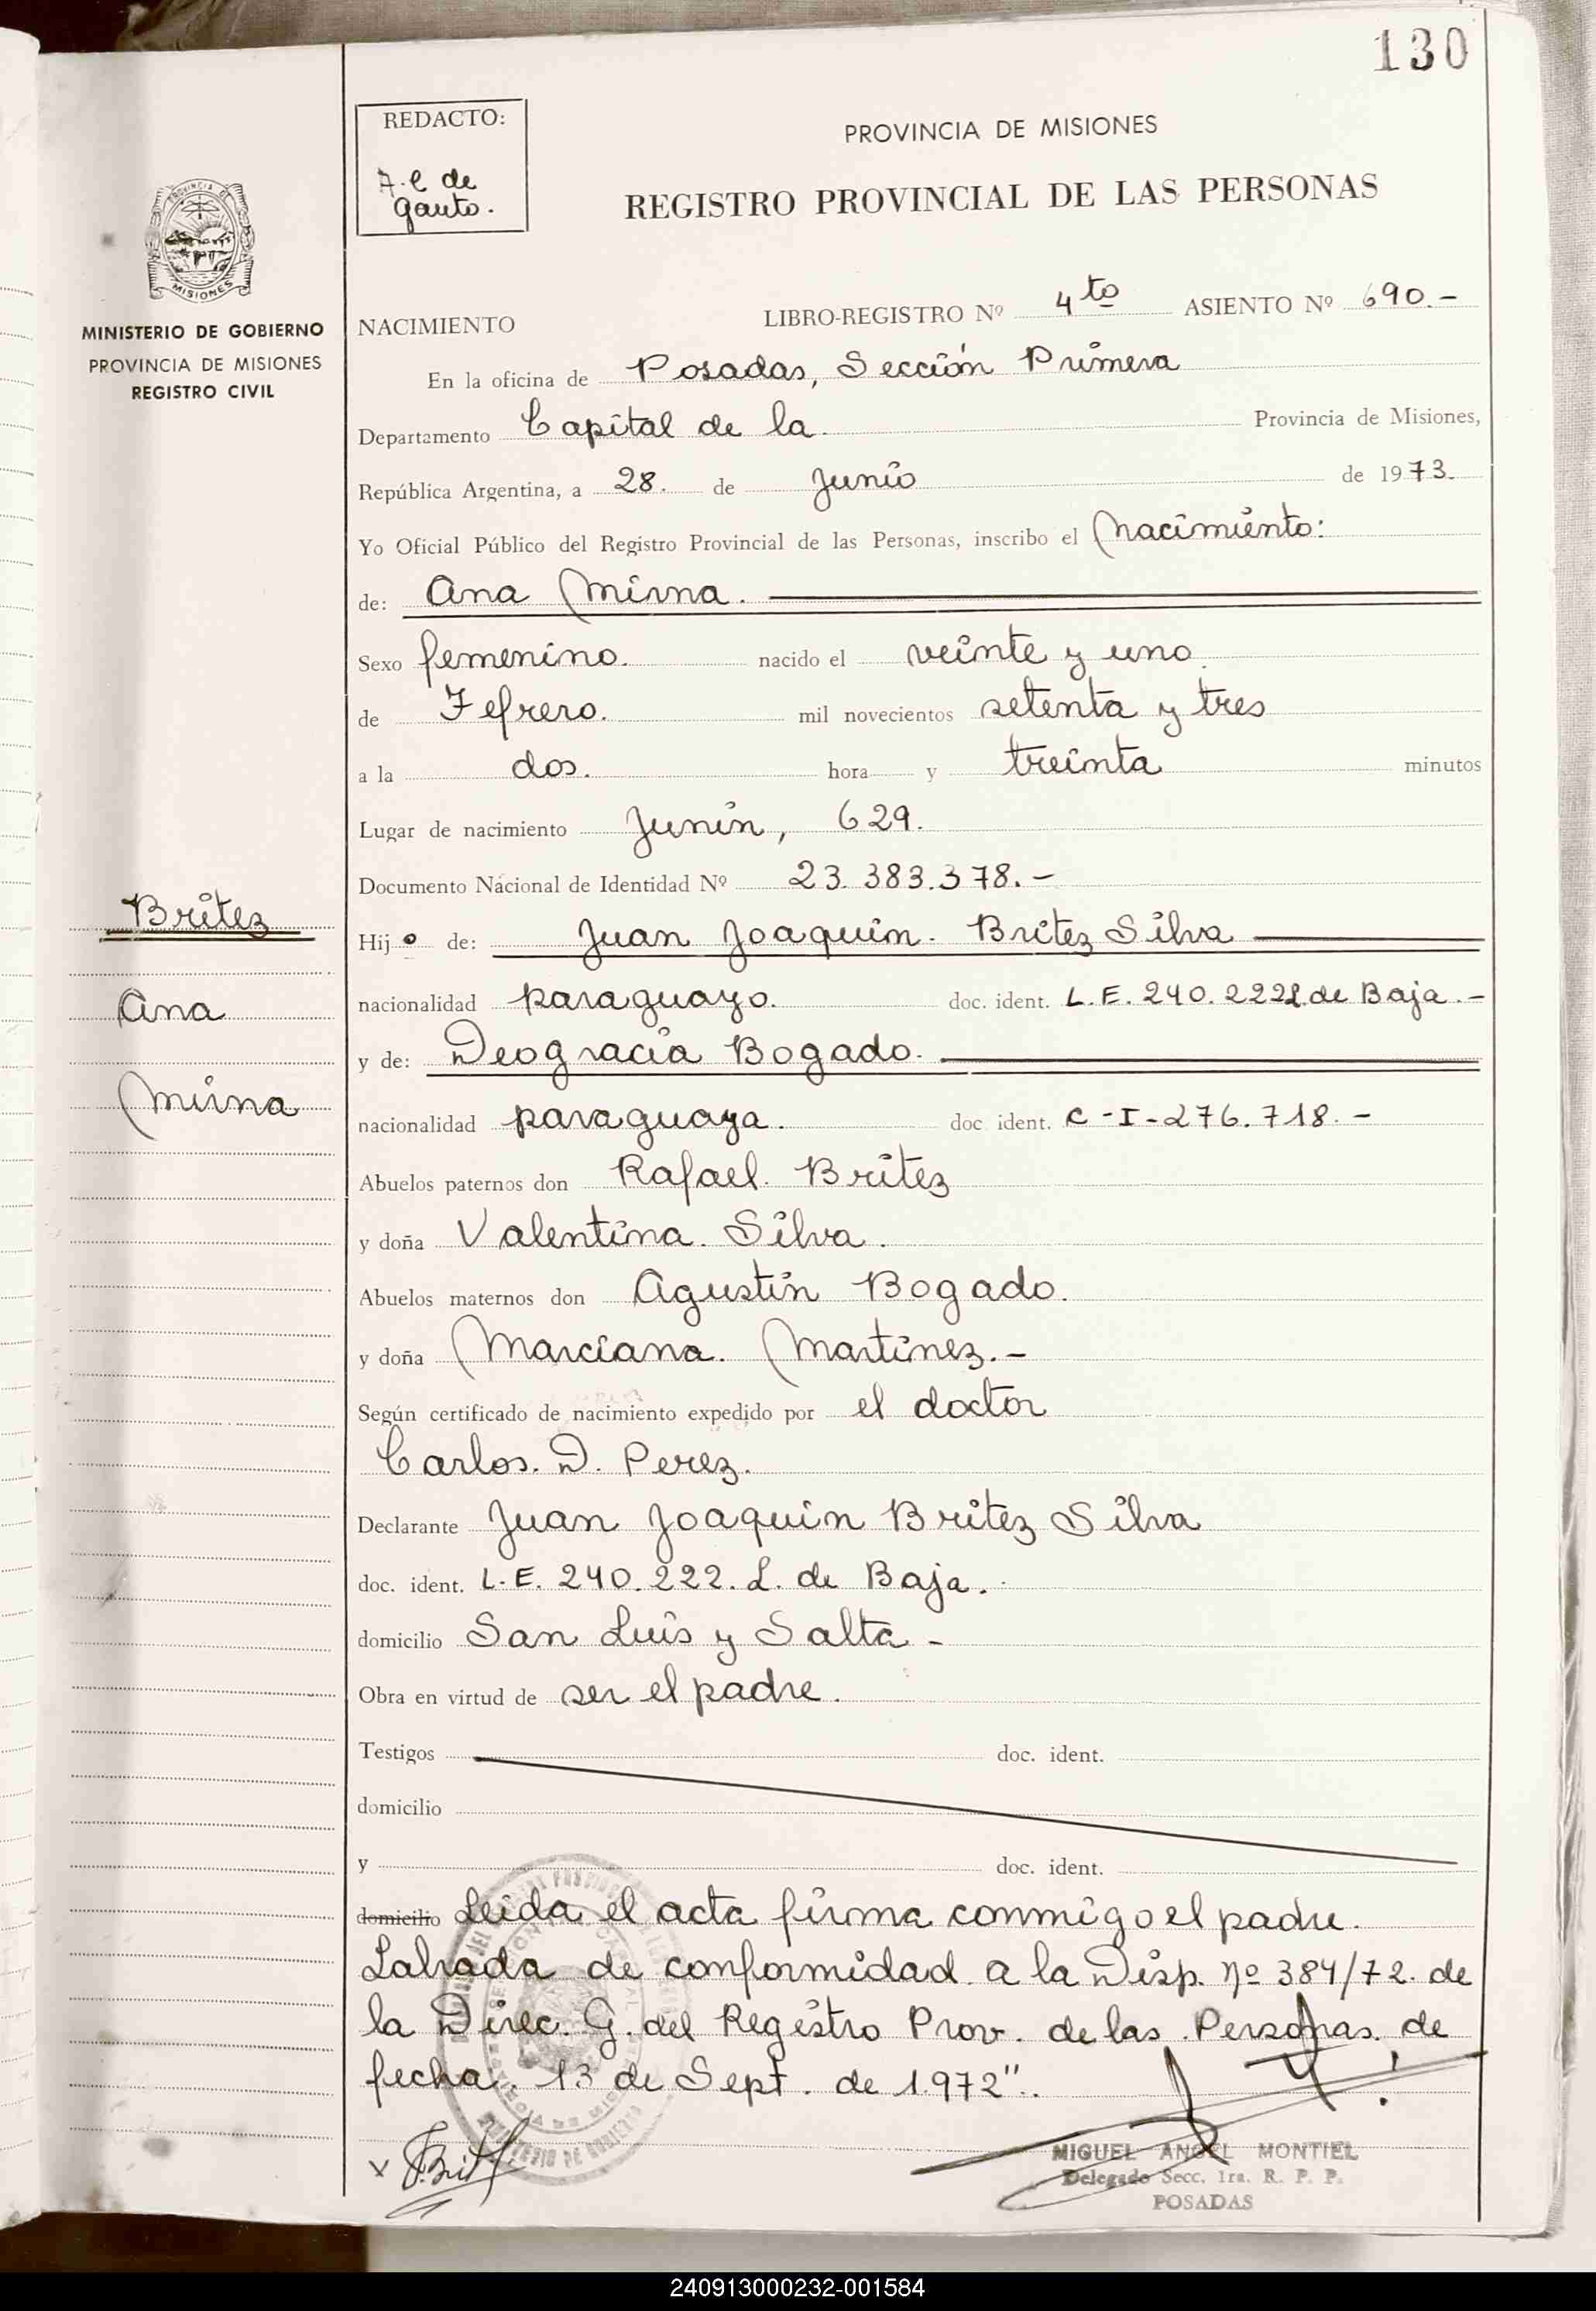 130
REDACTO:
A. e de
Gauto.
PROVINCIA DE MISIONES
REGISTRO PROVINCIAL DE LAS PERSONAS
MISIONES
MINISTERIO DE GOBIERNO
PROVINCIA DE MISIONES
REGISTRO CIVIL
NACIMIENTO LIBRO-REGISTRO Nº 4to ASIENTO Nº 690.-
En la oficina de Posadas, Sección Primera
Departamento Capital de la. Provincia de Misiones,
República Argentina, a 28. de Junio de 1973.
Yo Oficial Público del Registro Provincial de las Personas, inscribo el Nacimiento:
de: Ana Mirna.
Sexo femenino. nacido el veinte y uno.
de Fefrero. mil novecientos setenta y tres
a la dos. hora y treinta minutos
Lugar de nacimiento Junin, 629.
Documento Nacional de Identidad Nº 23.383.378.-
Britez
Hijo de: Juan Joaquin. Britez Silva
Ana
nacionalidad paraguayo. doc. ident. L.E. 240.222L de Baja.-
y de: Deogracia Bogado.
Mirna
nacionalidad paraguaya. doc ident. C-I-276.718.-
Abuelos paternos don Rafael. Britez
y doña Valentina. Silva.
Abuelos maternos don Agustín Bogado.
y doña Marciana. Martinez.-
Según certificado de nacimiento expedido por el doctor
Carlos. D. Perez.
Declarante Juan Joaquin Britez Silva
doc. ident. L.E. 240.222. L. de Baja.
domicilio San Luis y Salta-
Obra en virtud de ser el padre.
Testigos doc. ident.
domicilio
y doc. ident.
domicilio Leida el acta firma conmigo el padre.
Labrada de conformidad a la Disp. nº 384/72. de
la Direc. G. del Registro Prov. de las Personas. de
fecha. 13 de Sept. de 1.972".
x JBrit
MIGUEL ANGEL MONTIEL
Delegado Secc. 1ra. R. P. P.
POSADAS
240913000232-001584